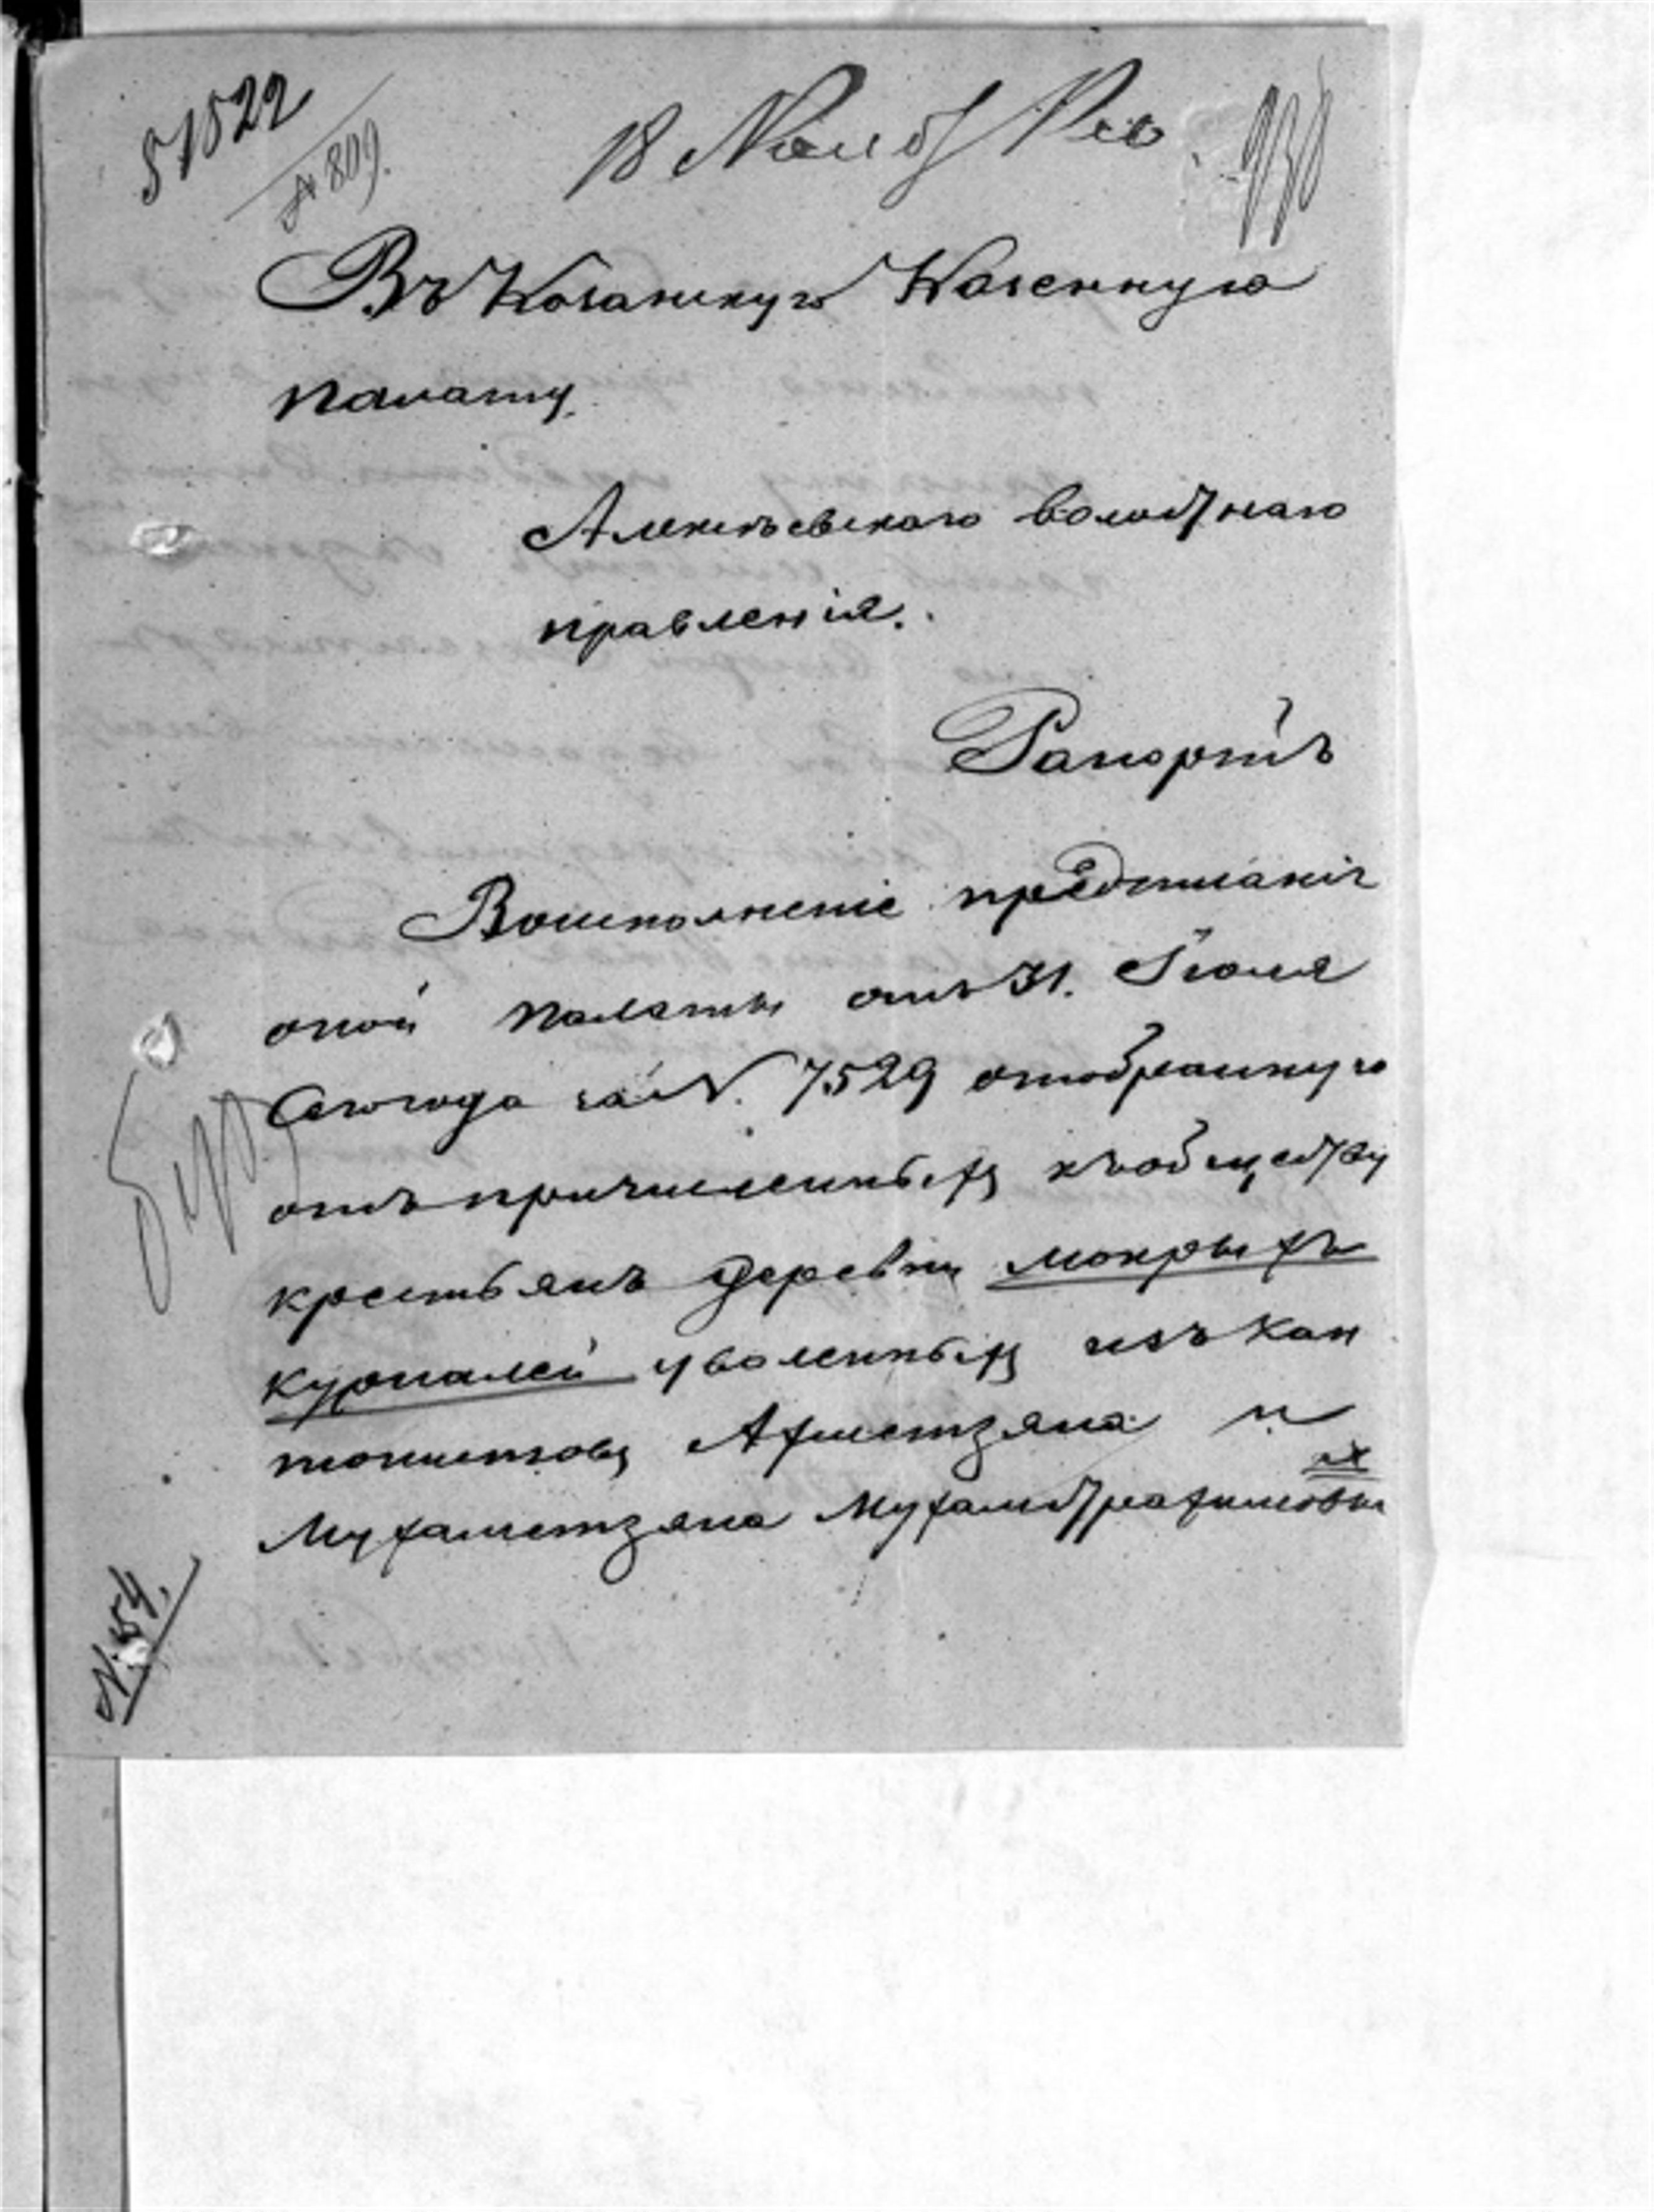 51522
№ 809.
18 Нояб
Въ Казанскую Казенную
палату.
Алексѣевскаго волостнаго
правленія.
Рапортъ
Воисполненіе предписанія
оной палаты отъ 31. Іюля
Сегогода за N. 7529 отобранную
отъ причисленныхъ къобществу
крестьянъ деревни мокрыхъ
курналей уволенныхъ изъ кан
тонистовъ Ахметзяна и
Мухаметзяна
N. 54.